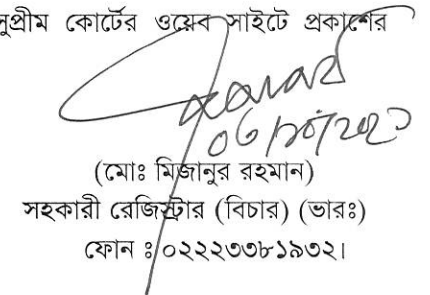 সুপ্রীম কোর্টের ওয়েব সাইটে প্রকাশের
(মোঃ মিজানুর রহমান)
সহকারী রেজিস্ট্রার (বিচার) (ভারঃ)
ফোন ঃ ০২২২৩৩৮১৯৩২।